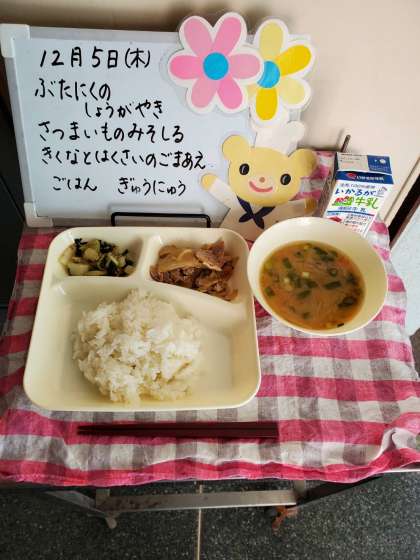 12月5日(木)
ぶたにくの
しょうがやき
さつまいものみそしる
きくなとはくさいのごまあえ
ごはん ぎゅうにゅう
いかるが
牛乳